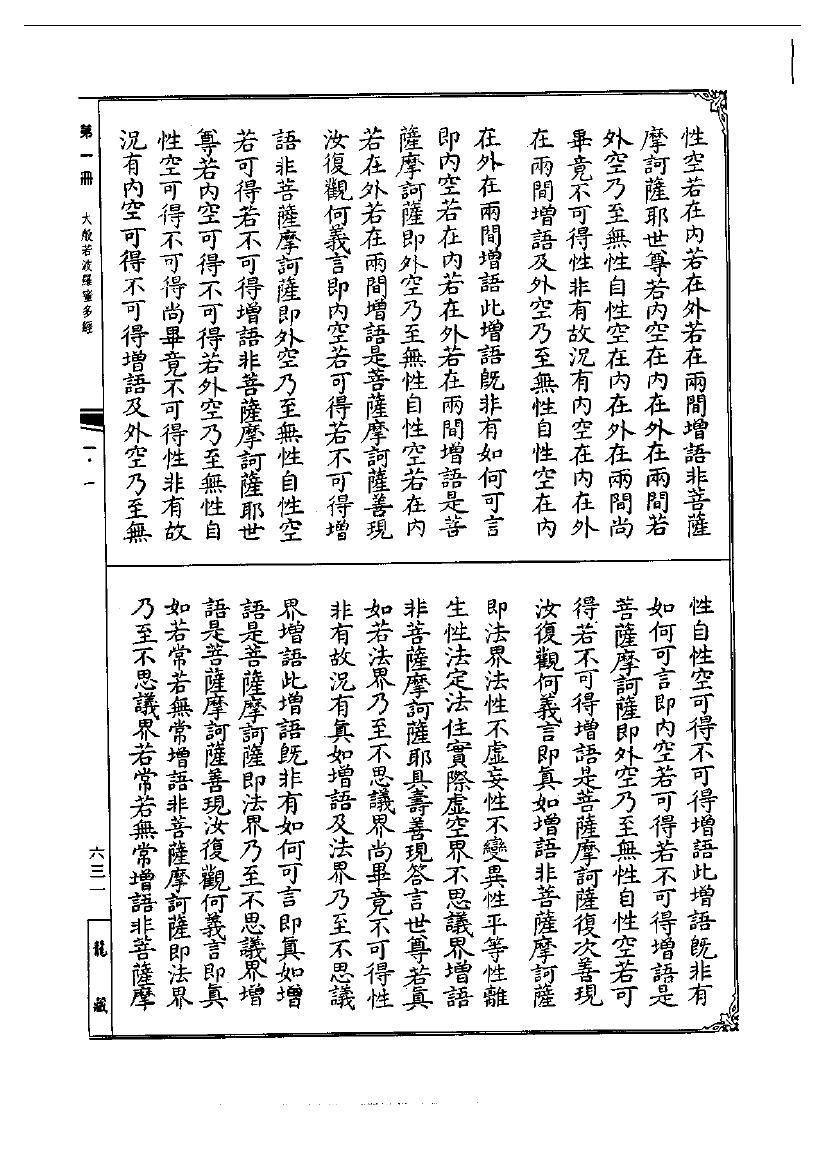 性空若在內若在外若在兩間增語非菩薩
摩訶薩耶世尊若內空在內在外在兩間若
外空乃至無性自性空在內在外在兩間尚
畢竟不可得性非有故況有內空在內在外
在兩間增語及外空乃至無性自性空在內
在外在兩間增語此增語既非有如何可言
即內空若在內若在外若在兩間增語是菩
薩摩訶薩即外空乃至無性自性空若在內
若在外若在兩間增語是菩薩摩訶薩善現
汝復觀何義言即內空若可得若不可得增
語非菩薩摩訶薩即外空乃至無性自性空
若可得若不可得增語非菩薩摩訶薩耶世
尊若內空可得不可得若外空乃至無性自
性空可得不可得尚畢竟不可得性非有故
況有內空可得不可得增語及外空乃至無
性自性空可得不可得增語此增語既非有
如何可言即內空若可得若不可得增語是
菩薩摩訶薩即外空乃至無性自性空若可
得若不可得增語是菩薩摩訶薩復次善現
汝復觀何義言即真如增語非菩薩摩訶薩
即法界法性不虛妄性不變異性平等性離
生性法定法住實際虛空界不思議界增語
非菩薩摩訶薩耶具壽善現答言世尊若真
如若法界乃至不思議界尚畢竟不可得性
非有故況有真如增語及法界乃至不思議
界增語此增語既非有如何可言即真如增
語是菩薩摩訶薩即法界乃至不思議界增
語是菩薩摩訶薩善現汝復觀何義言即真
如若常若無常增語非菩薩摩訶薩即法界
乃至不思議界若常若無常增語非菩薩摩
第一冊 大般若波羅蜜多經
一·一
六三一
龍藏